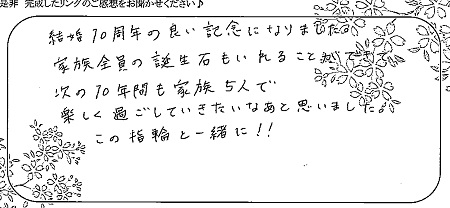 是非 完成したリングのご感想をお聞かせください♪
結婚10周年の良い記念になりました。
家族全員の誕生石もいれること ができ
次の10年間も家族5人で
楽しく過ごしていきたいなあと思いました。
この指輪と一緒に!!